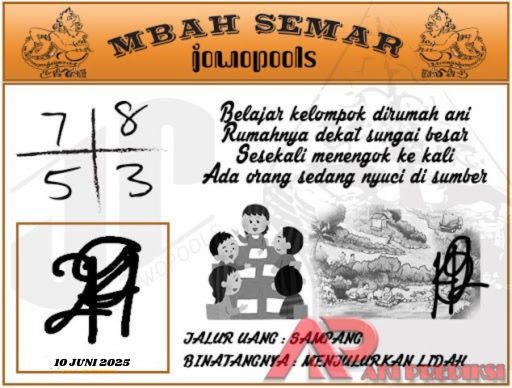 MBAH SEMAR
jowopools
7 8
5 3
Belajar kelompok dirumah ani
Rumahnya dekat sungai besar
Sesekali menengok ke kali
Ada orang sedang nyuci di sumber
10 JUNI 2025
JALUR UANG : SAMPANG
BINATANGNYA : MENJULURKAN LIDAH